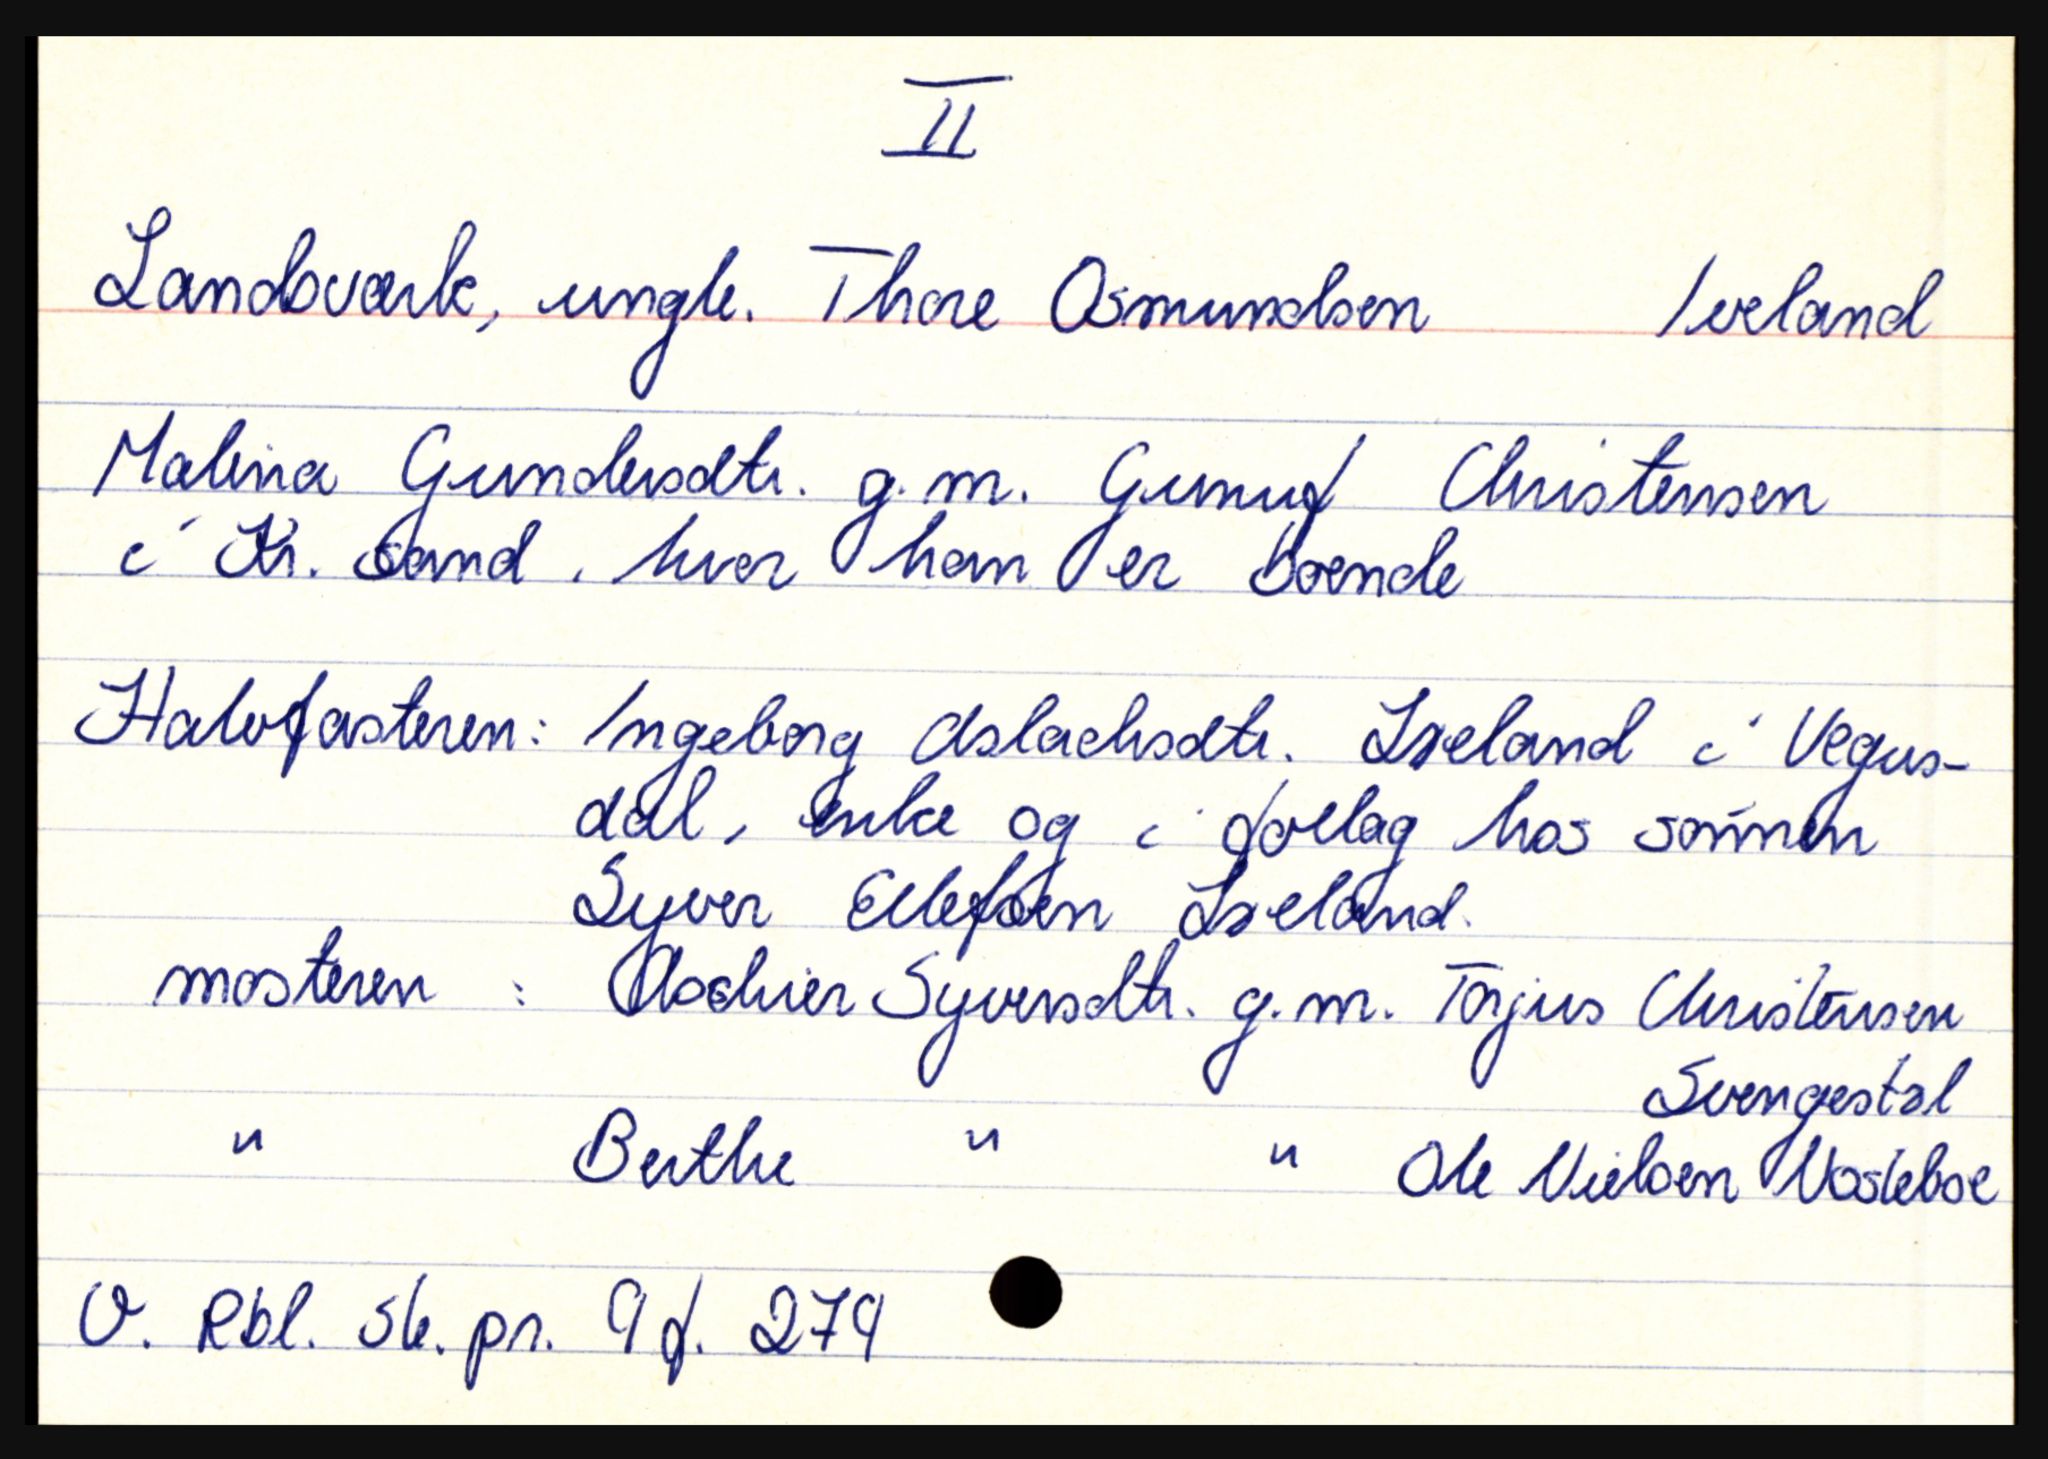 II
Landsværk, ungk. Thore Osmundsen Iveland
Malena Gundersdtr. g.m. Gunuf Christensen
i Kr. sand, hvor han er boende
Halvfasteren: Ingeborg Aslachsdtr. Iveland i Vegus-
dal, enke og i föellag hos sönnen
Syver Ellefsen Iveland.
mosteren : Aschier Syversdtr. g.m. Torjus Christensen
Svengestøl
" Berthe " " Ole Nielsen Wosleboe
V. Rbl. Sk. pr. 9 f. 279